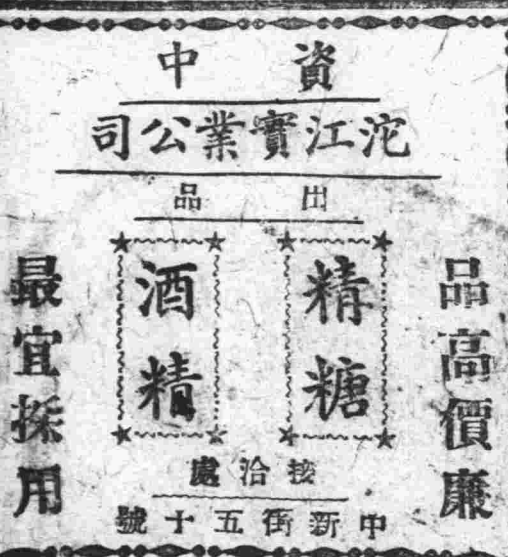 資中
沱江實業公司
出品
品高價廉
精糖
酒精
最宜採用
接洽處
中新街五十號